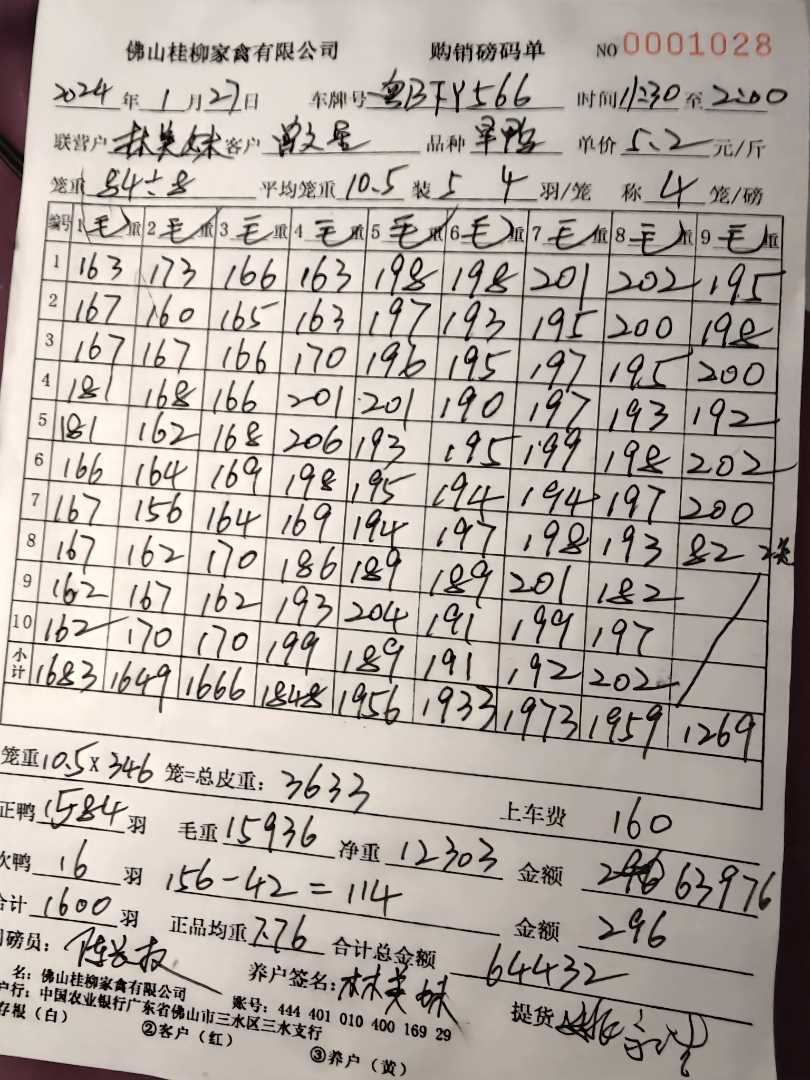 佛山桂柳家禽有限公司 购销磅码单 NO 0001028
2024年1月27日 车牌号粤BFY566 时间11:30至2:00
联营户林美妹客户曾文星 品种旱鸭 单价5.2元/斤
笼重84÷8 平均笼重10.5装5 4羽/笼 称4笼/磅
编号 1毛重 2毛重 3毛重 4毛重 5毛重 6毛重 7毛重 8毛重 9毛重
1 163 173 166 163 198 198 201 202 195
2 167 160 165 163 197 193 195 200 198
3 167 167 166 170 196 195 197 195 200
4 181 168 166 201 201 190 197 193 192
5 181 162 168 206 193 195 199 198 202
6 166 164 169 198 195 194 194 197 200
7 167 156 164 169 194 197 198 193 82 2笼
8 167 162 170 186 189 189 201 182
9 162 167 162 193 204 191 199 197
10 162 170 170 199 189 191 192 202
小计 1683 1649 1666 1848 1956 1933 1973 1959 1269
笼重10.5×346笼=总皮重：3633 上车费 160
正鸭1584羽 毛重15936 净重12303 金额 63976
次鸭16羽 156-42=114 金额 296
合计1600羽 正品均重7.76 合计总金额 64432
司磅员： 养户签名：林美妹 提货
名：佛山桂柳家禽有限公司 账号：444 401 010 400 169 29
户行：中国农业银行广东省佛山市三水区三水支行
存根（白） ②客户（红） ③养户（黄）